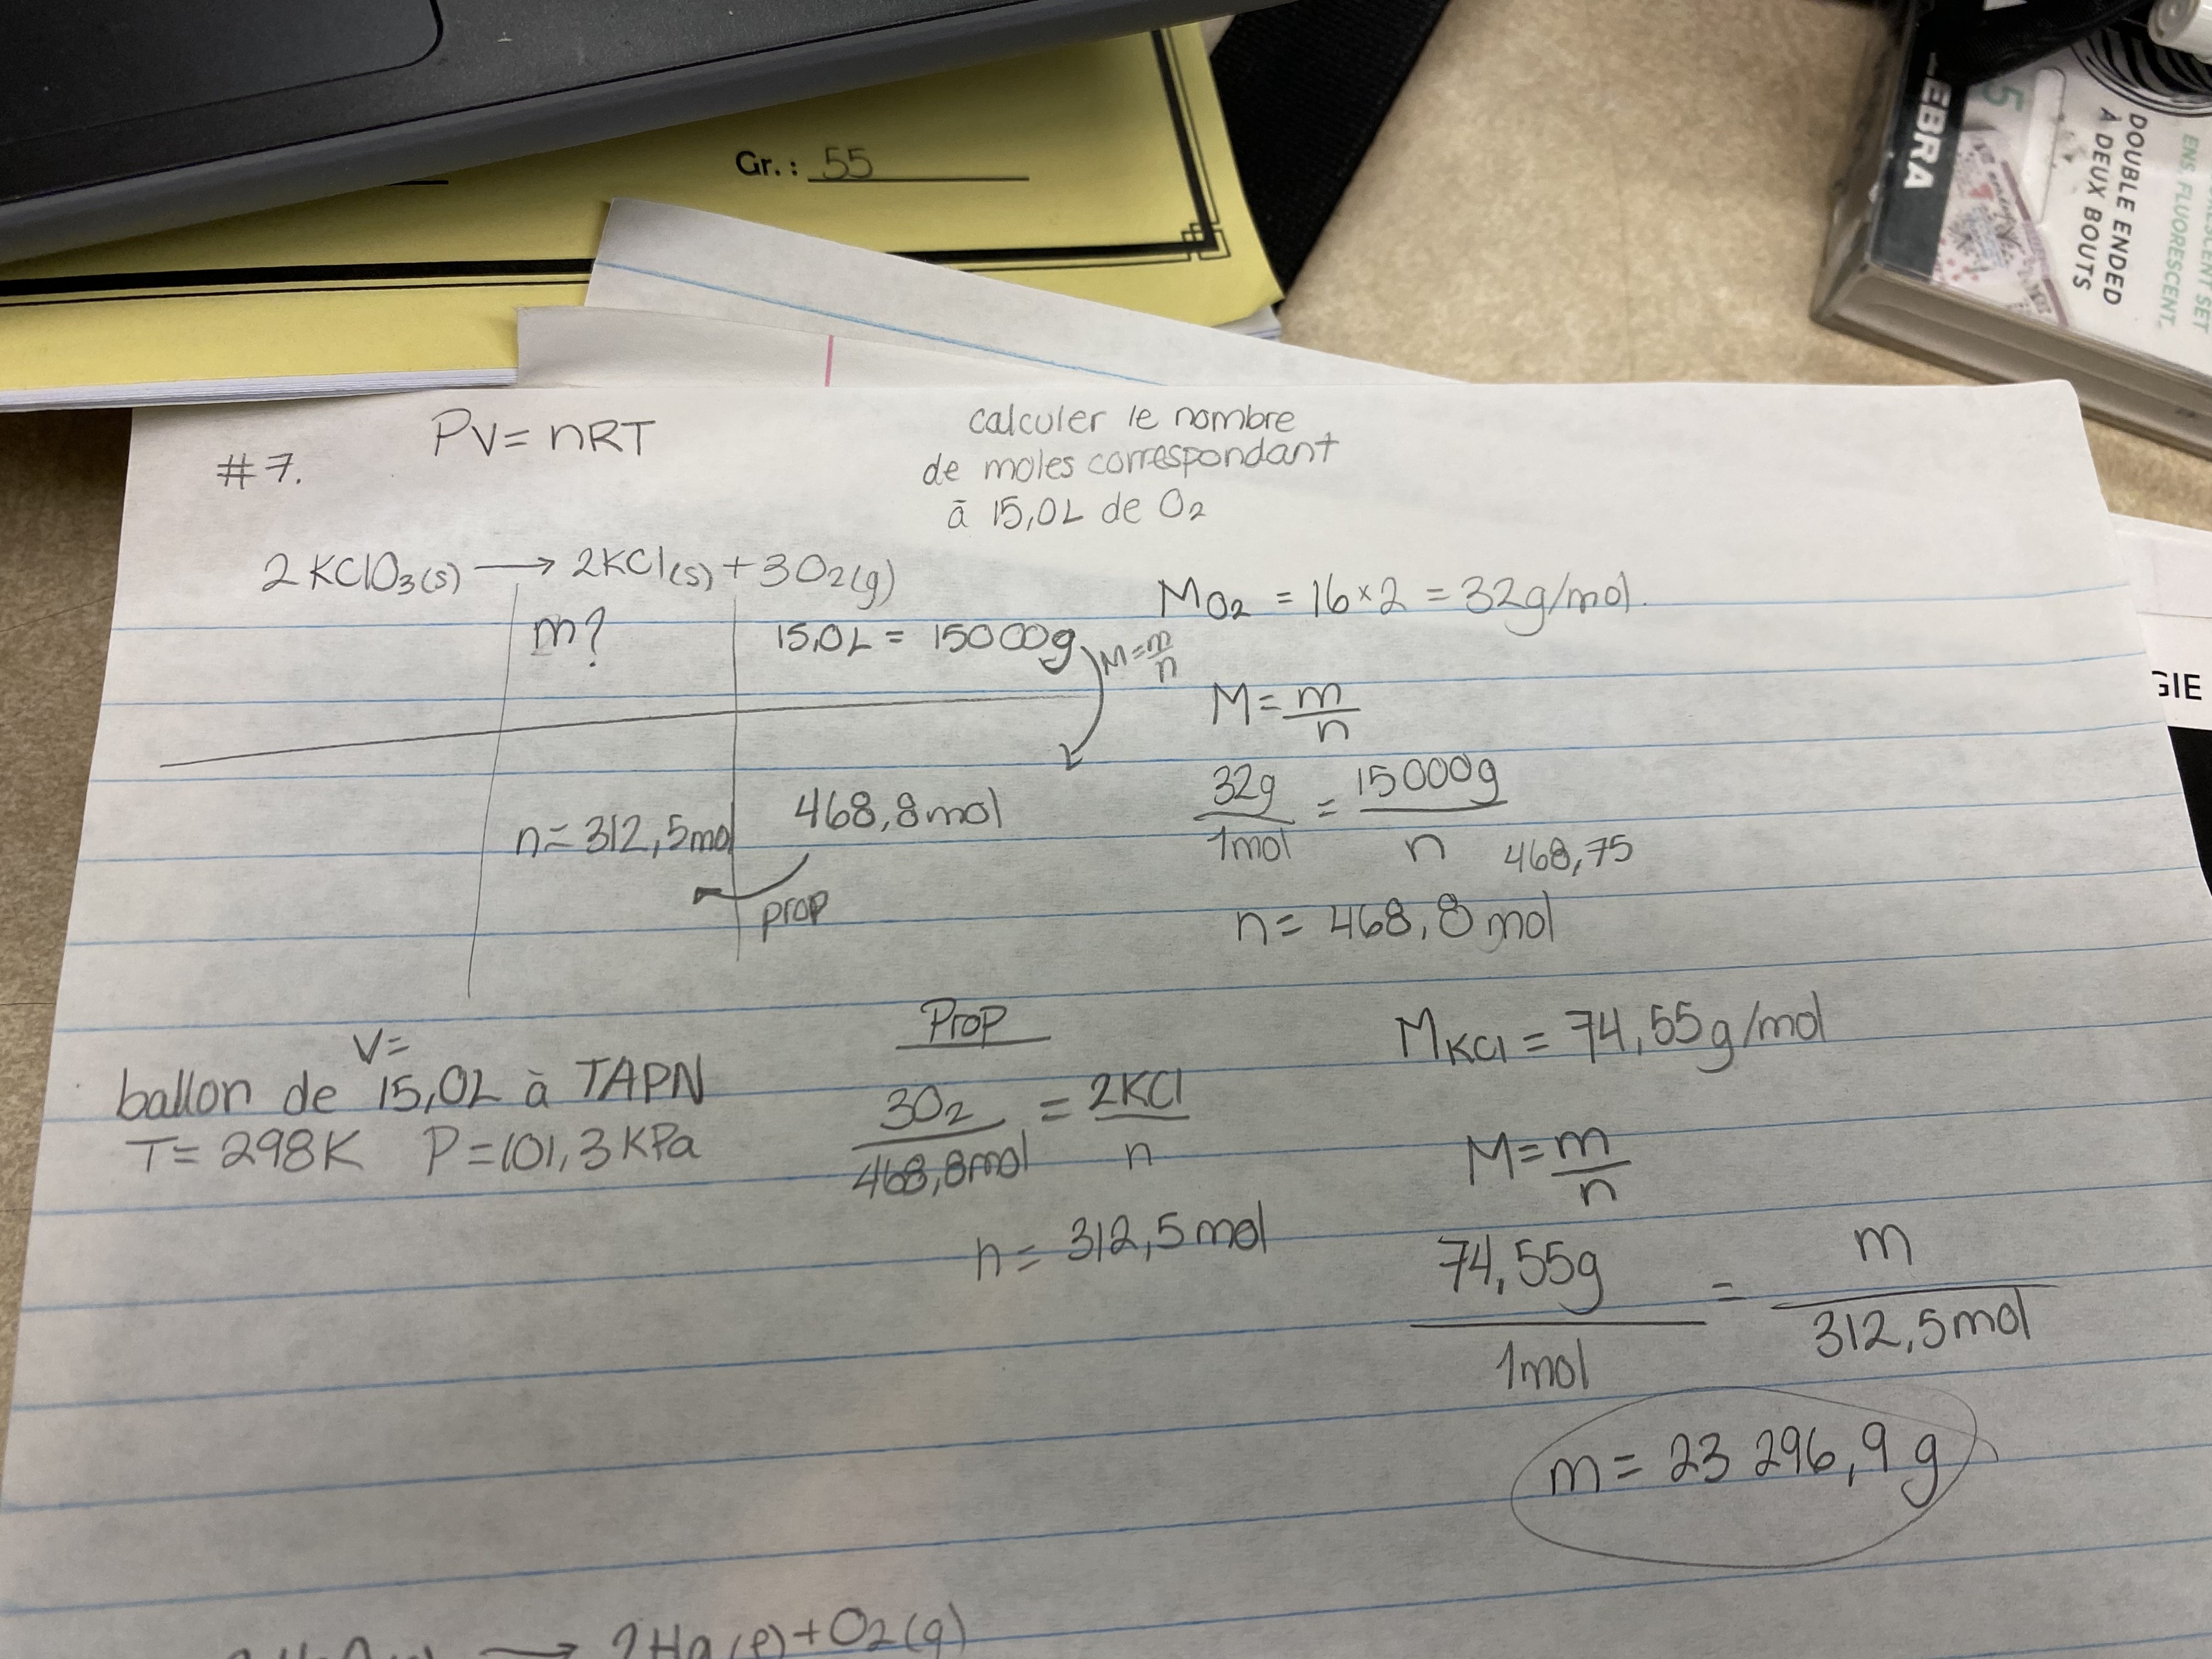 Gr. : 55
ZEBRA
5
DOUBLE ENDED
À DEUX BOUTS
SET
ENS. FLUORESCENT.
GIE
#7.
PV = nRT
calculer le nombre
de moles correspondant
à 15,0L de O2
2 KClO3(s) → 2KCl(s) + 3O2(g)
m?
15,0L = 15000g
M = m/n
n = 312,5mol
468,8mol
prop
MO2 = 16 × 2 = 32g/mol.
M = m/n
32g/1mol = 15000g/n
468,75
n = 468,8 mol
V=
ballon de 15,0L à TAPN
T = 298K P = 101,3 KPa
Prop
3O2/468,8mol = 2KCl/n
n = 312,5 mol
MKCl = 74,55g/mol
M = m/n
74,55g/1mol = m/312,5mol
m = 23 296,9 g
→ 2Hg(l) + O2(g)